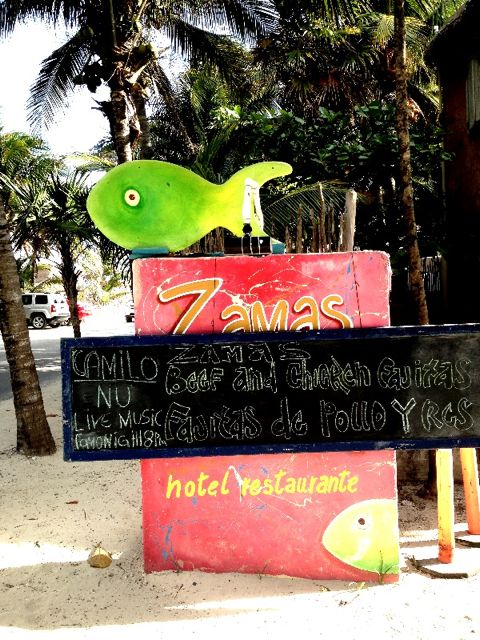 Zamas
CAMILO
NU
LIVE MUSIC
ZAMAS
Beef and Chicken Fajitas
Fajitas de Pollo Y Res
hotel restaurante